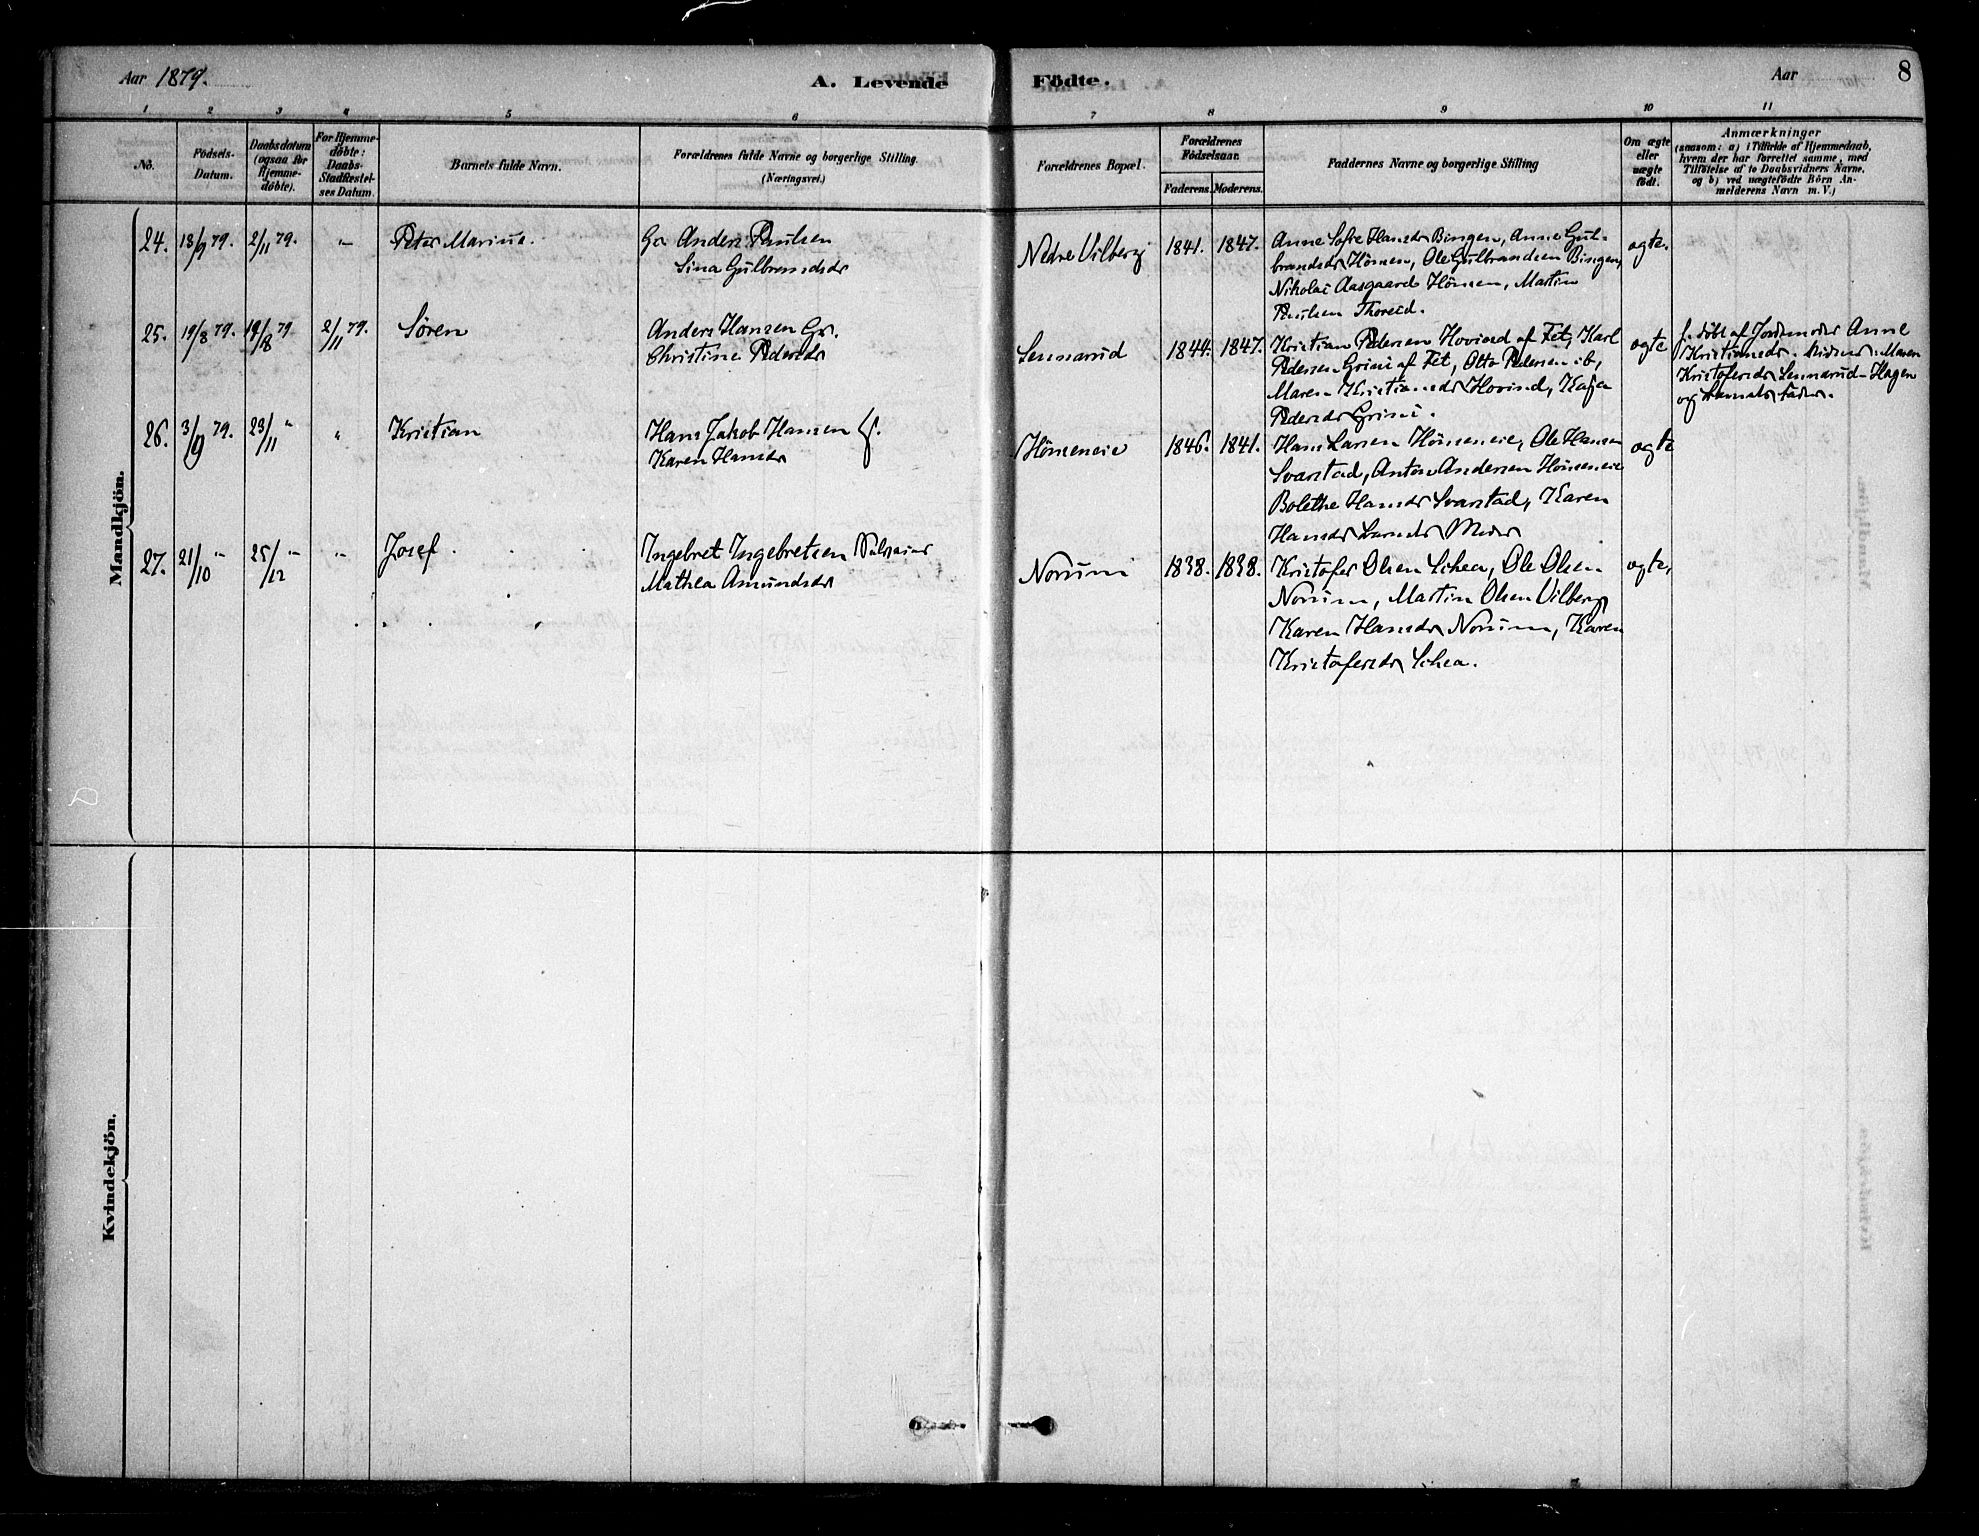 Aar 1879.
A. Levende
Födte.
Aar
8
1 2 3 4 5 6 7 8 9 10 11
No.
Födsels-
Datum.
Daabsdatum
(ogsaa for
Hjemme-
döbte).
For Hjemme-
döbte:
Daabs-
Stadfæstel-
ses Datum.
Barnets fulde Navn.
Forældrenes fulde Navne og borgerlige Stilling.
(Næringsvei.)
Forældrenes Bopæl.
Forældrenes
Födselsaar.
Faderens. Moderens.
Faddernes Navne og borgerlige Stilling
Om ægte
eller
uægte
födt.
Anmærkninger
(saasom: a) i Tilfælde af Hjemmedaab,
hvem der har forrettet samme, med
Tilföielse af to Daabsvidners Navne,
og b) ved uægtefödte Börn An-
melderens Navn m. V.)
Mandkjön.
24. 18/9 79. 2/11 79. "
Peter Marius.
Gr. Anders Paulsen
Sina Gulbrandsdr
Nedre Vilberg
1841. 1847.
Anne Sofie Hansdr Bingen, Anne Gul-
brandsdr Hömen, Ole Gulbrandsen Bingen,
Nikolai Aasgaard Hömen, Martin
Paulsen Thoreid.
ægte.
25. 19/8 79. 19/8 79 2/11 79.
Sören
Anders Hansen Gr.
Christine Pedersdr
Sennarud
1844. 1847.
Kristian Pedersen Hovind af Fet, Karl
Pedersen Grini af Fet, Otto Pedersen ib,
Maren Kristiansdr Hovind, Kaja
Pedersdr Grini.
ægte
hj. döbt af Jordemoder Anne
Kristiansdr. Vidner: Maren
Kristofersdr Sennarud-Hagen
og Barnets Fader.
26. 3/9 79. 23/11 " "
Kristian
Hans Jakob Hansen
Karen Hansdr
Hömeneie
1846. 1841.
Hans Larsen Hömeneie, Ole Hansen
Svarstad, Anton Andersen Hömeneie
Bolethe Hansdr Svarstad, Karen
Hansdr Barnets Moder
ægte
27. 21/10 " 25/12 " "
Josef
Ingebret Ingebretsen
Mathea Amundsdr
Norum
1838. 1838.
Kristofer Olsen Schea, Ole Olsen
Norum, Martin Olsen Vilberg
Karen Hansdr Norum, Karen
Kristofersdr Schea.
ægte,
Kvindekjön.